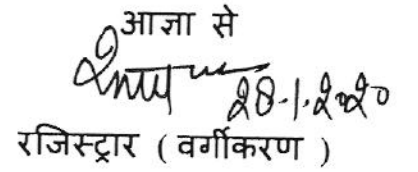 आज्ञा से
28.1.2020
रजिस्ट्रार ( वर्गीकरण )